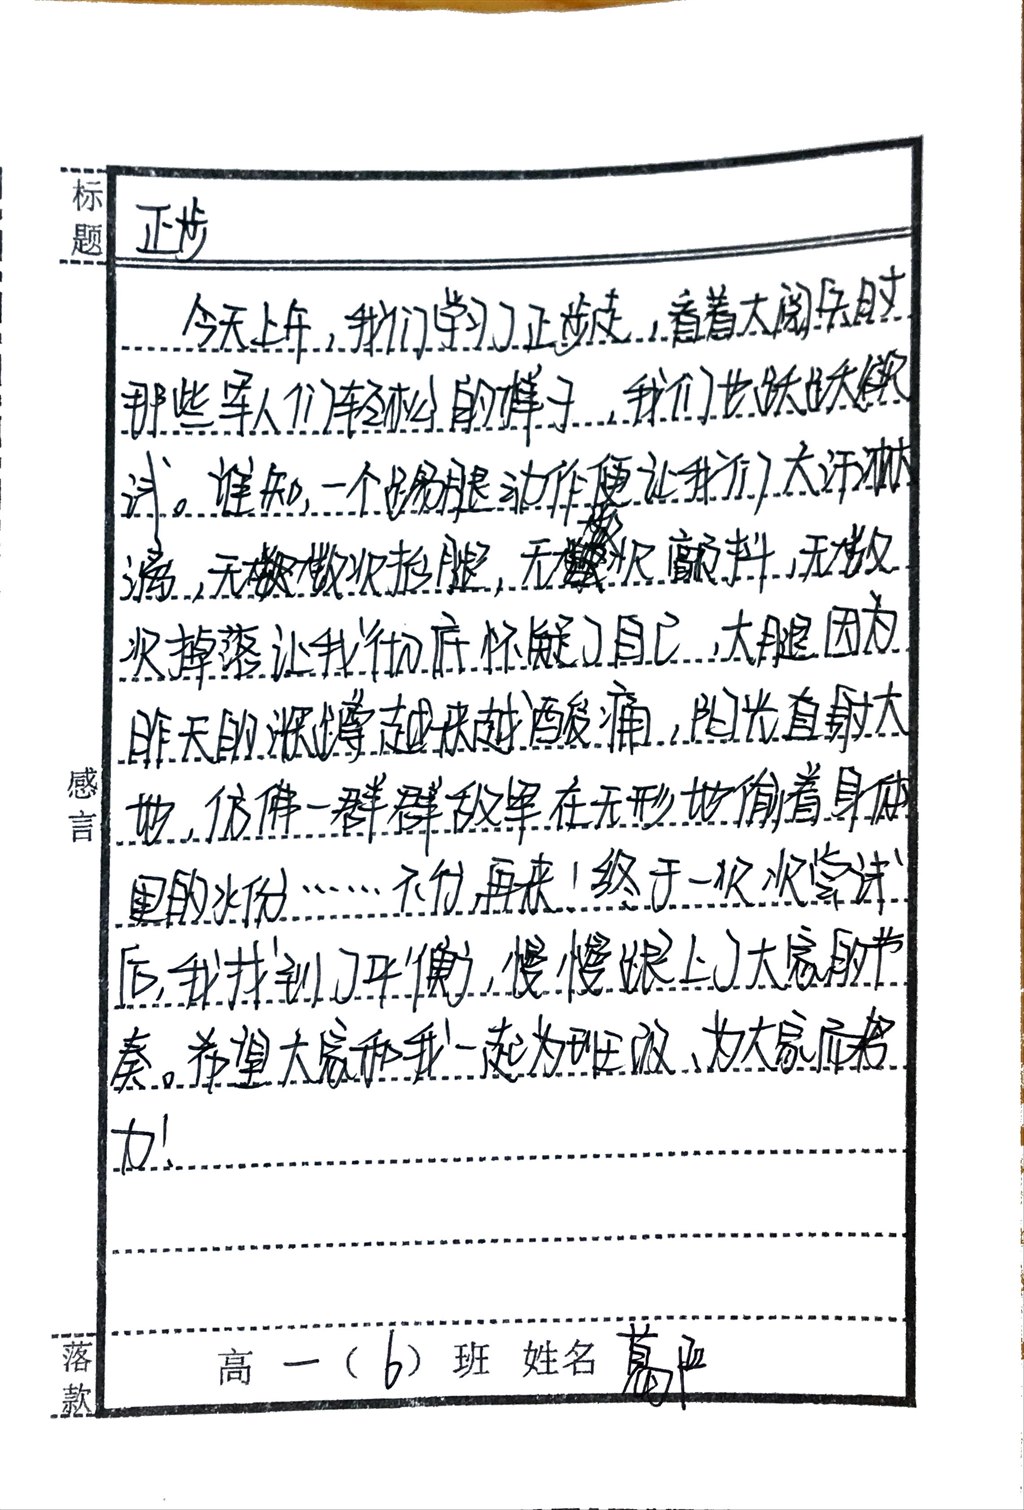 标题
正步
今天上午，我们学习了正步走，看着大阅兵时
那些军人们轻松的样子，我们也跃跃欲
试。谁知，一个踢腿动作便让我们大汗淋
漓，无数次抬腿，无数次颤抖，无数
次掉落让我彻底怀疑了自己，大腿因为
昨天的深蹲越来越酸痛，阳光直射大
地，仿佛一群群敌军在无形地偷着身体
里的水份……不行，再来！终于一次次尝试
后，我找到了平衡，慢慢跟上了大家的节
奏。希望大家和我一起为班级、为大家而努
力！
感言
落款
高一（6）班 姓名 葛严